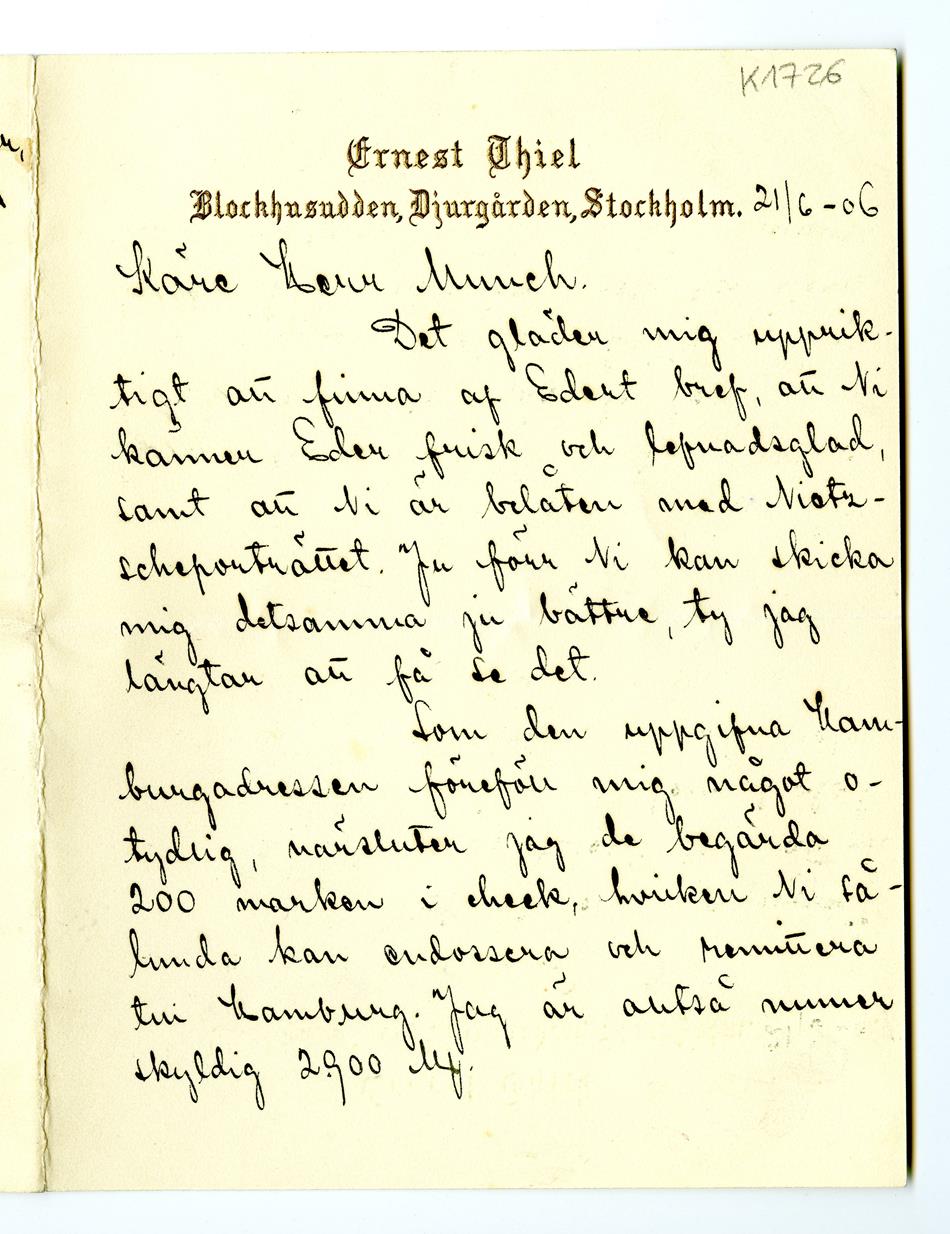 K1726
Ernest Thiel
Blockhusudden, Djurgården, Stockholm. 21/6 - 06
Käre Herr Munch.
Det gläder mig upprik-
tigt att finna af Edert bref, att Ni
känner Eder frisk och lefnadsglad,
samt att Ni är belåten med Nietz-
scheporträttet. Ju förr Ni kan skicka
mig detsamma ju bättre, ty jag
längtar att få se det.
Som den uppgifna Ham-
burgadressen föreföll mig något o-
tydlig, närsluter jag de begärda
200 marken i check, hvilken Ni så-
lunda kan endossera och remittera
till Hamburg. Jag är alltså numer
skyldig 2900 M.